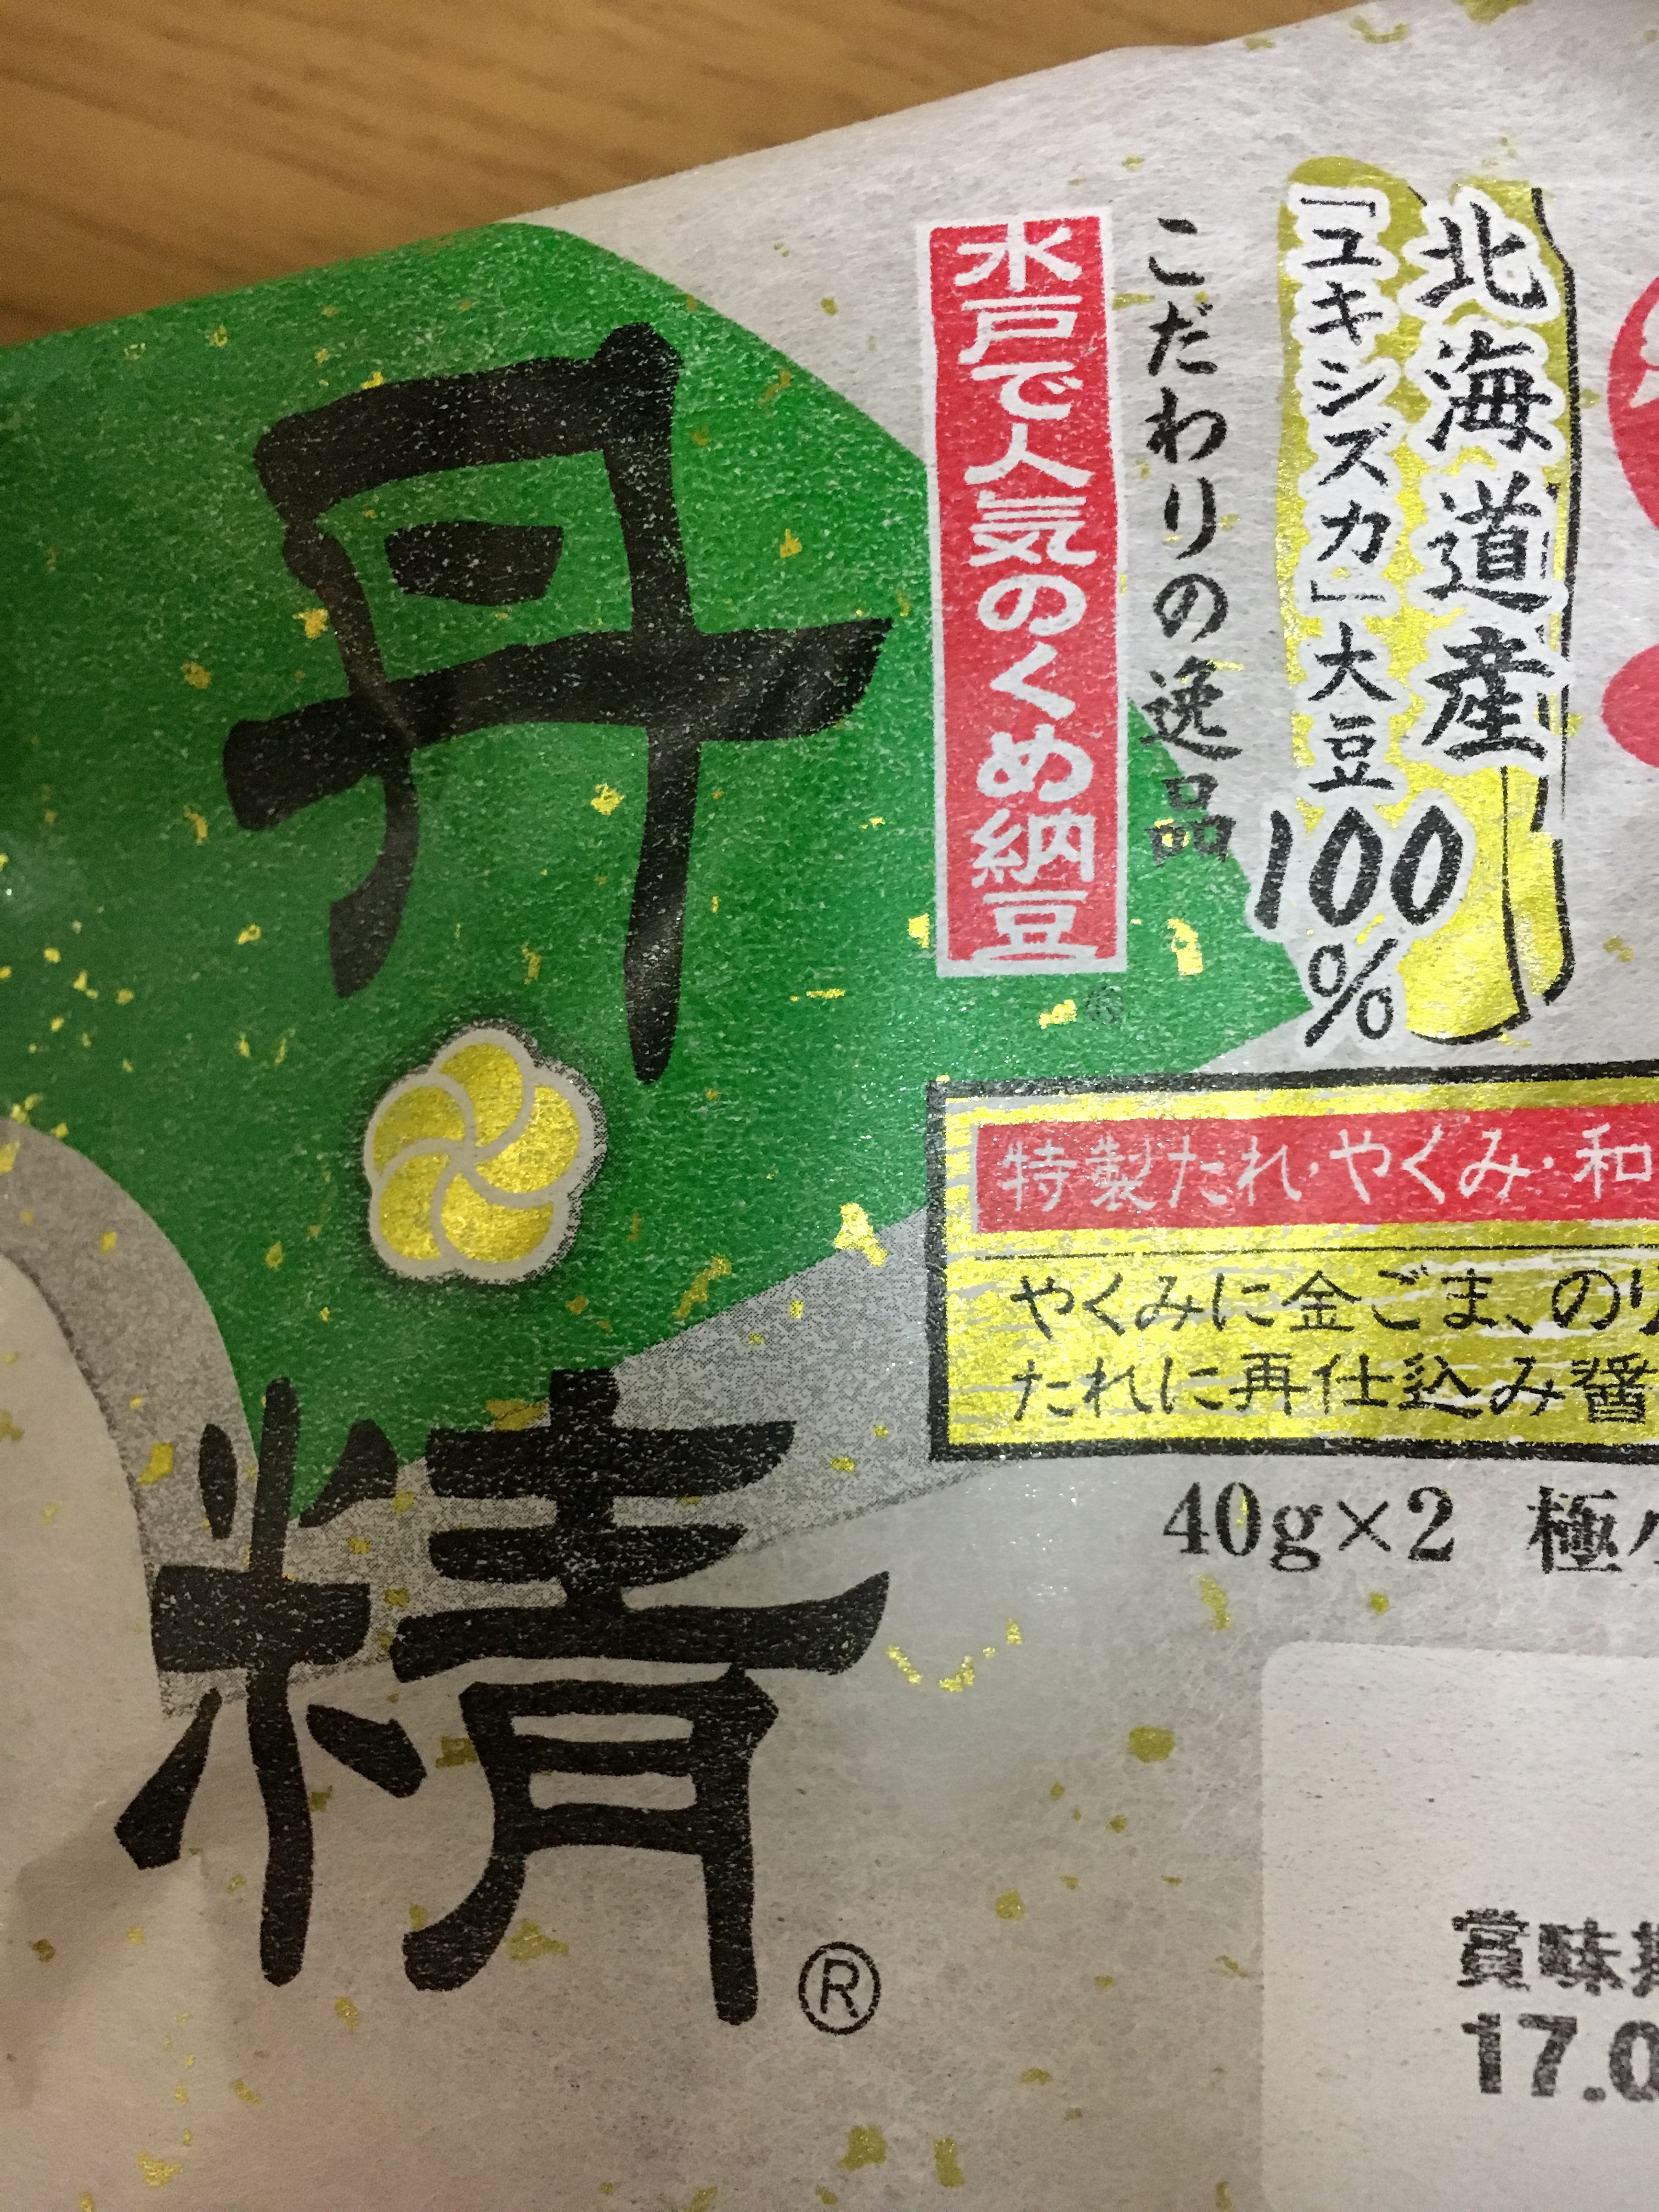 北海道産
「ユキシズカ」大豆
100%
こだわりの逸品
水戸で人気のくめ納豆
®
丹精
®
特製たれ・やくみ・和
やくみに金ごま、のり
たれに再仕込み醤
40g×2 極
賞味
17.0